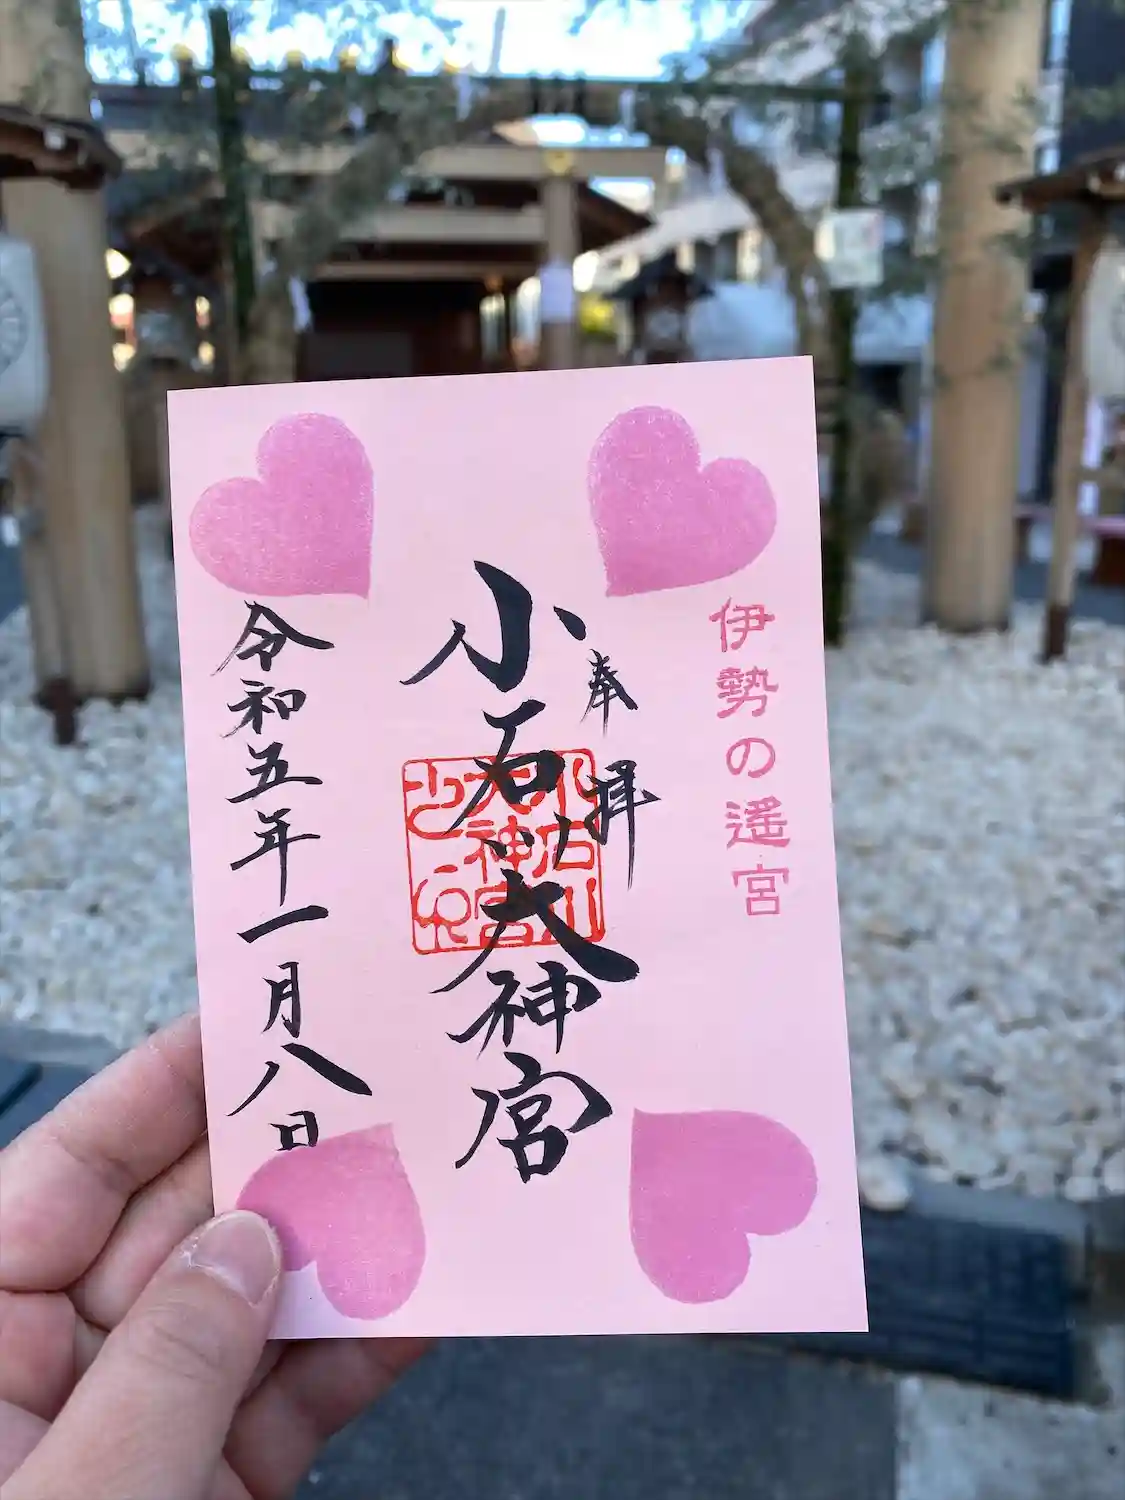 伊勢の遥宮
奉拝
小石川大神宮
小石川
大神宮
令和五年一月八日